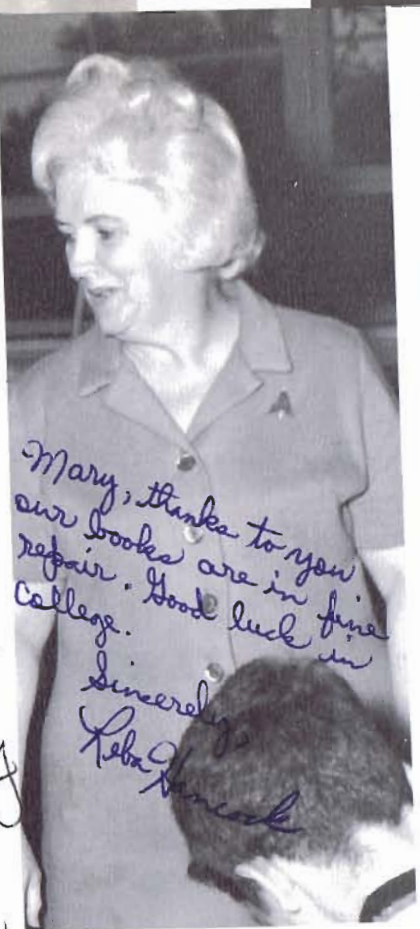 Mary, thanks to you
our books are in fine
repair. Good luck in
College.
Sincerely,
Reba Hancock